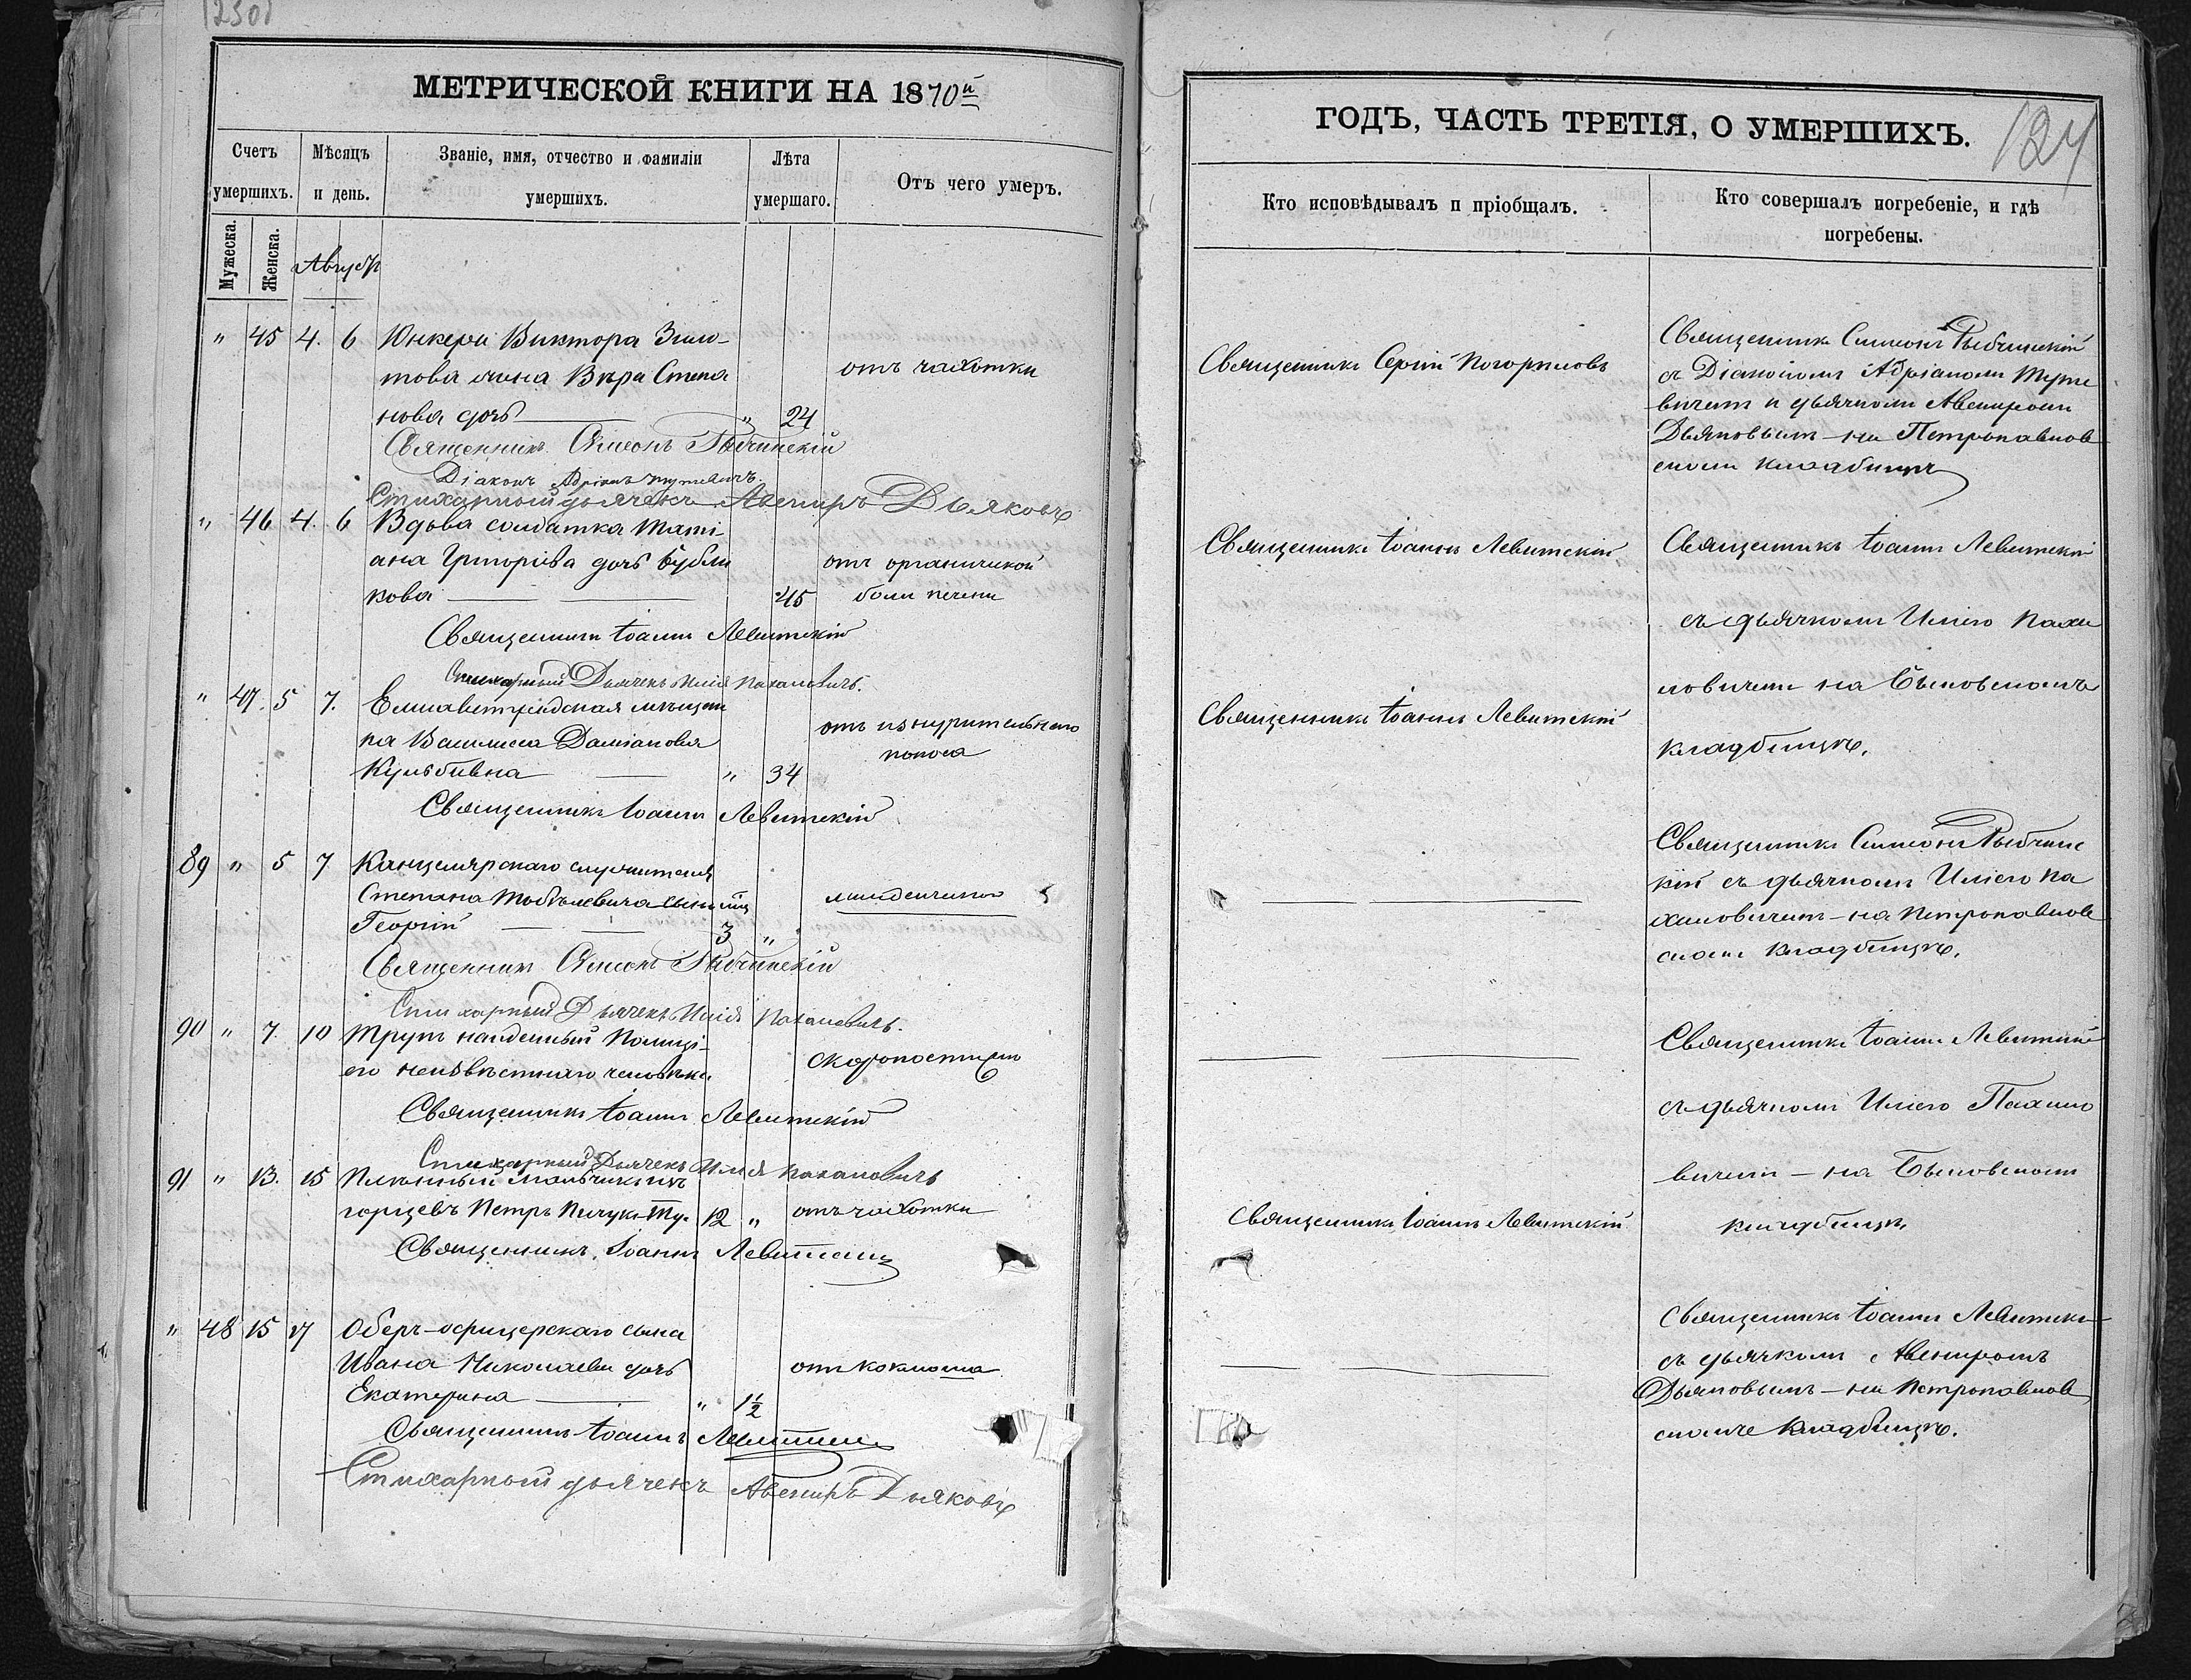 МЕТРИЧЕСКОЙ КНИГИ НА 1870й
Счетъ умершихъ.
Мѣсяцъ и день.
Званіе, имя, отчество и фамиліи умершихъ.
Лѣта умершаго.
Отъ чего умеръ.
Мужеска.
Женска.
Августъ
" 45 4. 6 Юнкера Виктора
това жена Вѣра Степа
нова дочь " 24
отъ чахотки
Священникъ Симеонъ Рыбчинскій
Діаконъ Адріанъ
Стихарный дьячекъ Авениръ Дьяковъ
" 46 4. 6 Вдова солдатка Тати
ана Григоріева дочь Бубли
кова 45
отъ органической
боли печени
Священникъ Іоаннъ Левитскій
Стихарный Дьячекъ Илія Пахаловичъ.
" 47. 5 7. Елисаветградская мѣщан
ка Василиса Даміанова
" 34
отъ изнурительнаго
поноса
Священникъ Іоаннъ Левитскій
89 " 5 7 Канцелярскаго служителя
Степана Тобѣлевича сынъ мц
Георгій 3 "
младенческой
Священникъ Симеонъ Рыбчинскій
Стихарный Дьячекъ Илія Пахаловичъ.
90 " 7. 10 Трупъ найденный Полиці
ею неизвѣстнаго человѣка.
скоропостижно
Священникъ Іоаннъ Левитскій
Стихарный Дьячекъ Илія Пахаловичъ
91 " 13. 15 Плѣнный мальчикъ изъ
горцевъ Петръ 12 "
отъ чахотки
Священникъ Іоаннъ Левитскій
" 48 15 17 Оберъ-офицерскаго сына
Ивана Николаева дочь
Екатерина " 1½
отъ коклюша
Священникъ Іоаннъ Левитскій
Стихарный дьячекъ Авениръ Дьяковъ
ГОДЪ, ЧАСТЬ ТРЕТІЯ, О УМЕРШИХЪ.
124
Кто исповѣдывалъ и пріобщалъ.
Кто совершалъ погребеніе, и гдѣ погребены.
Священникъ Сергій Погорѣловъ
Священникъ Симеонъ Рыбчинскій
съ Діакономъ Адріаномъ
вичемъ и дьячкомъ Авениромъ
Дьяковымъ — на Петропавлов
скомъ кладбищѣ
Священникъ Іоаннъ Левитскій
Священникъ Іоаннъ Левитскій
съ дьячкомъ Иліею Паха
ловичемъ на Быковскомъ
кладбищѣ.
Священникъ Іоаннъ Левитскій
Священникъ Симеонъ Рыбчинс
кій съ дьячкомъ Иліею Па
халовичемъ — на Петропавлов
скомъ кладбищѣ.
Священникъ Іоаннъ Левитскій
съ дьячкомъ Иліею Пахало
вичемъ — на Быковскомъ
кладбищѣ.
Священникъ Іоаннъ Левитскій
Священникъ Іоаннъ Левитскі
съ дьячкомъ Авениромъ
Дьяковымъ — на Петропавлов
скомъ кладбищѣ.